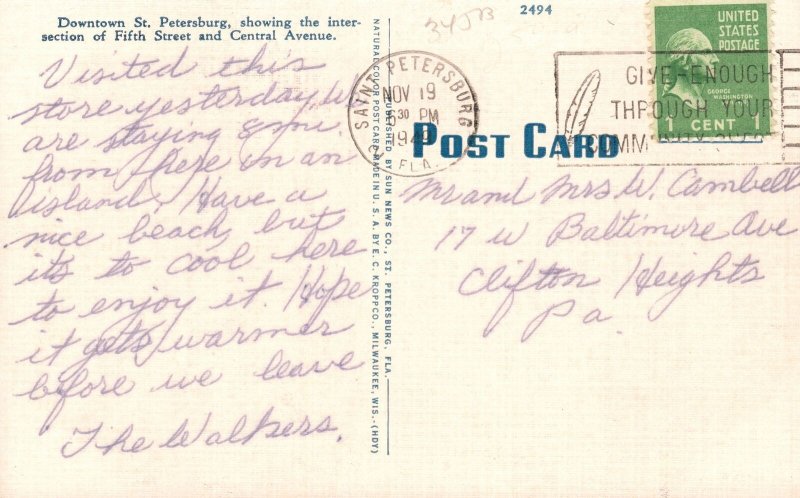 Downtown St. Petersburg, showing the inter-
section of Fifth Street and Central Avenue.
2494
Visited this
store yesterday. We
are staying 8 mi.
from here in an
island. Have a
nice beach, but
its to cool here
to enjoy it. Hope
it gets warmer
before we leave
The Walkers.
NATURAL COLOR POST CARD MADE IN U. S. A. BY E. C. KROPP CO., MILWAUKEE, WIS. (HDY)
PUBLISHED BY SUN NEWS CO., ST. PETERSBURG, FLA.
SAINT PETERSBURG
NOV 19
6 30 PM
1949
FLA.
POST CARD
GIVE-ENOUGH
THROUGH YOUR
COMMUNITY
UNITED
STATES
POSTAGE
GEORGE
WASHINGTON
1 CENT
Mr and Mrs W. Cambell
17 W Baltimore Ave
Clifton Heights
Pa.